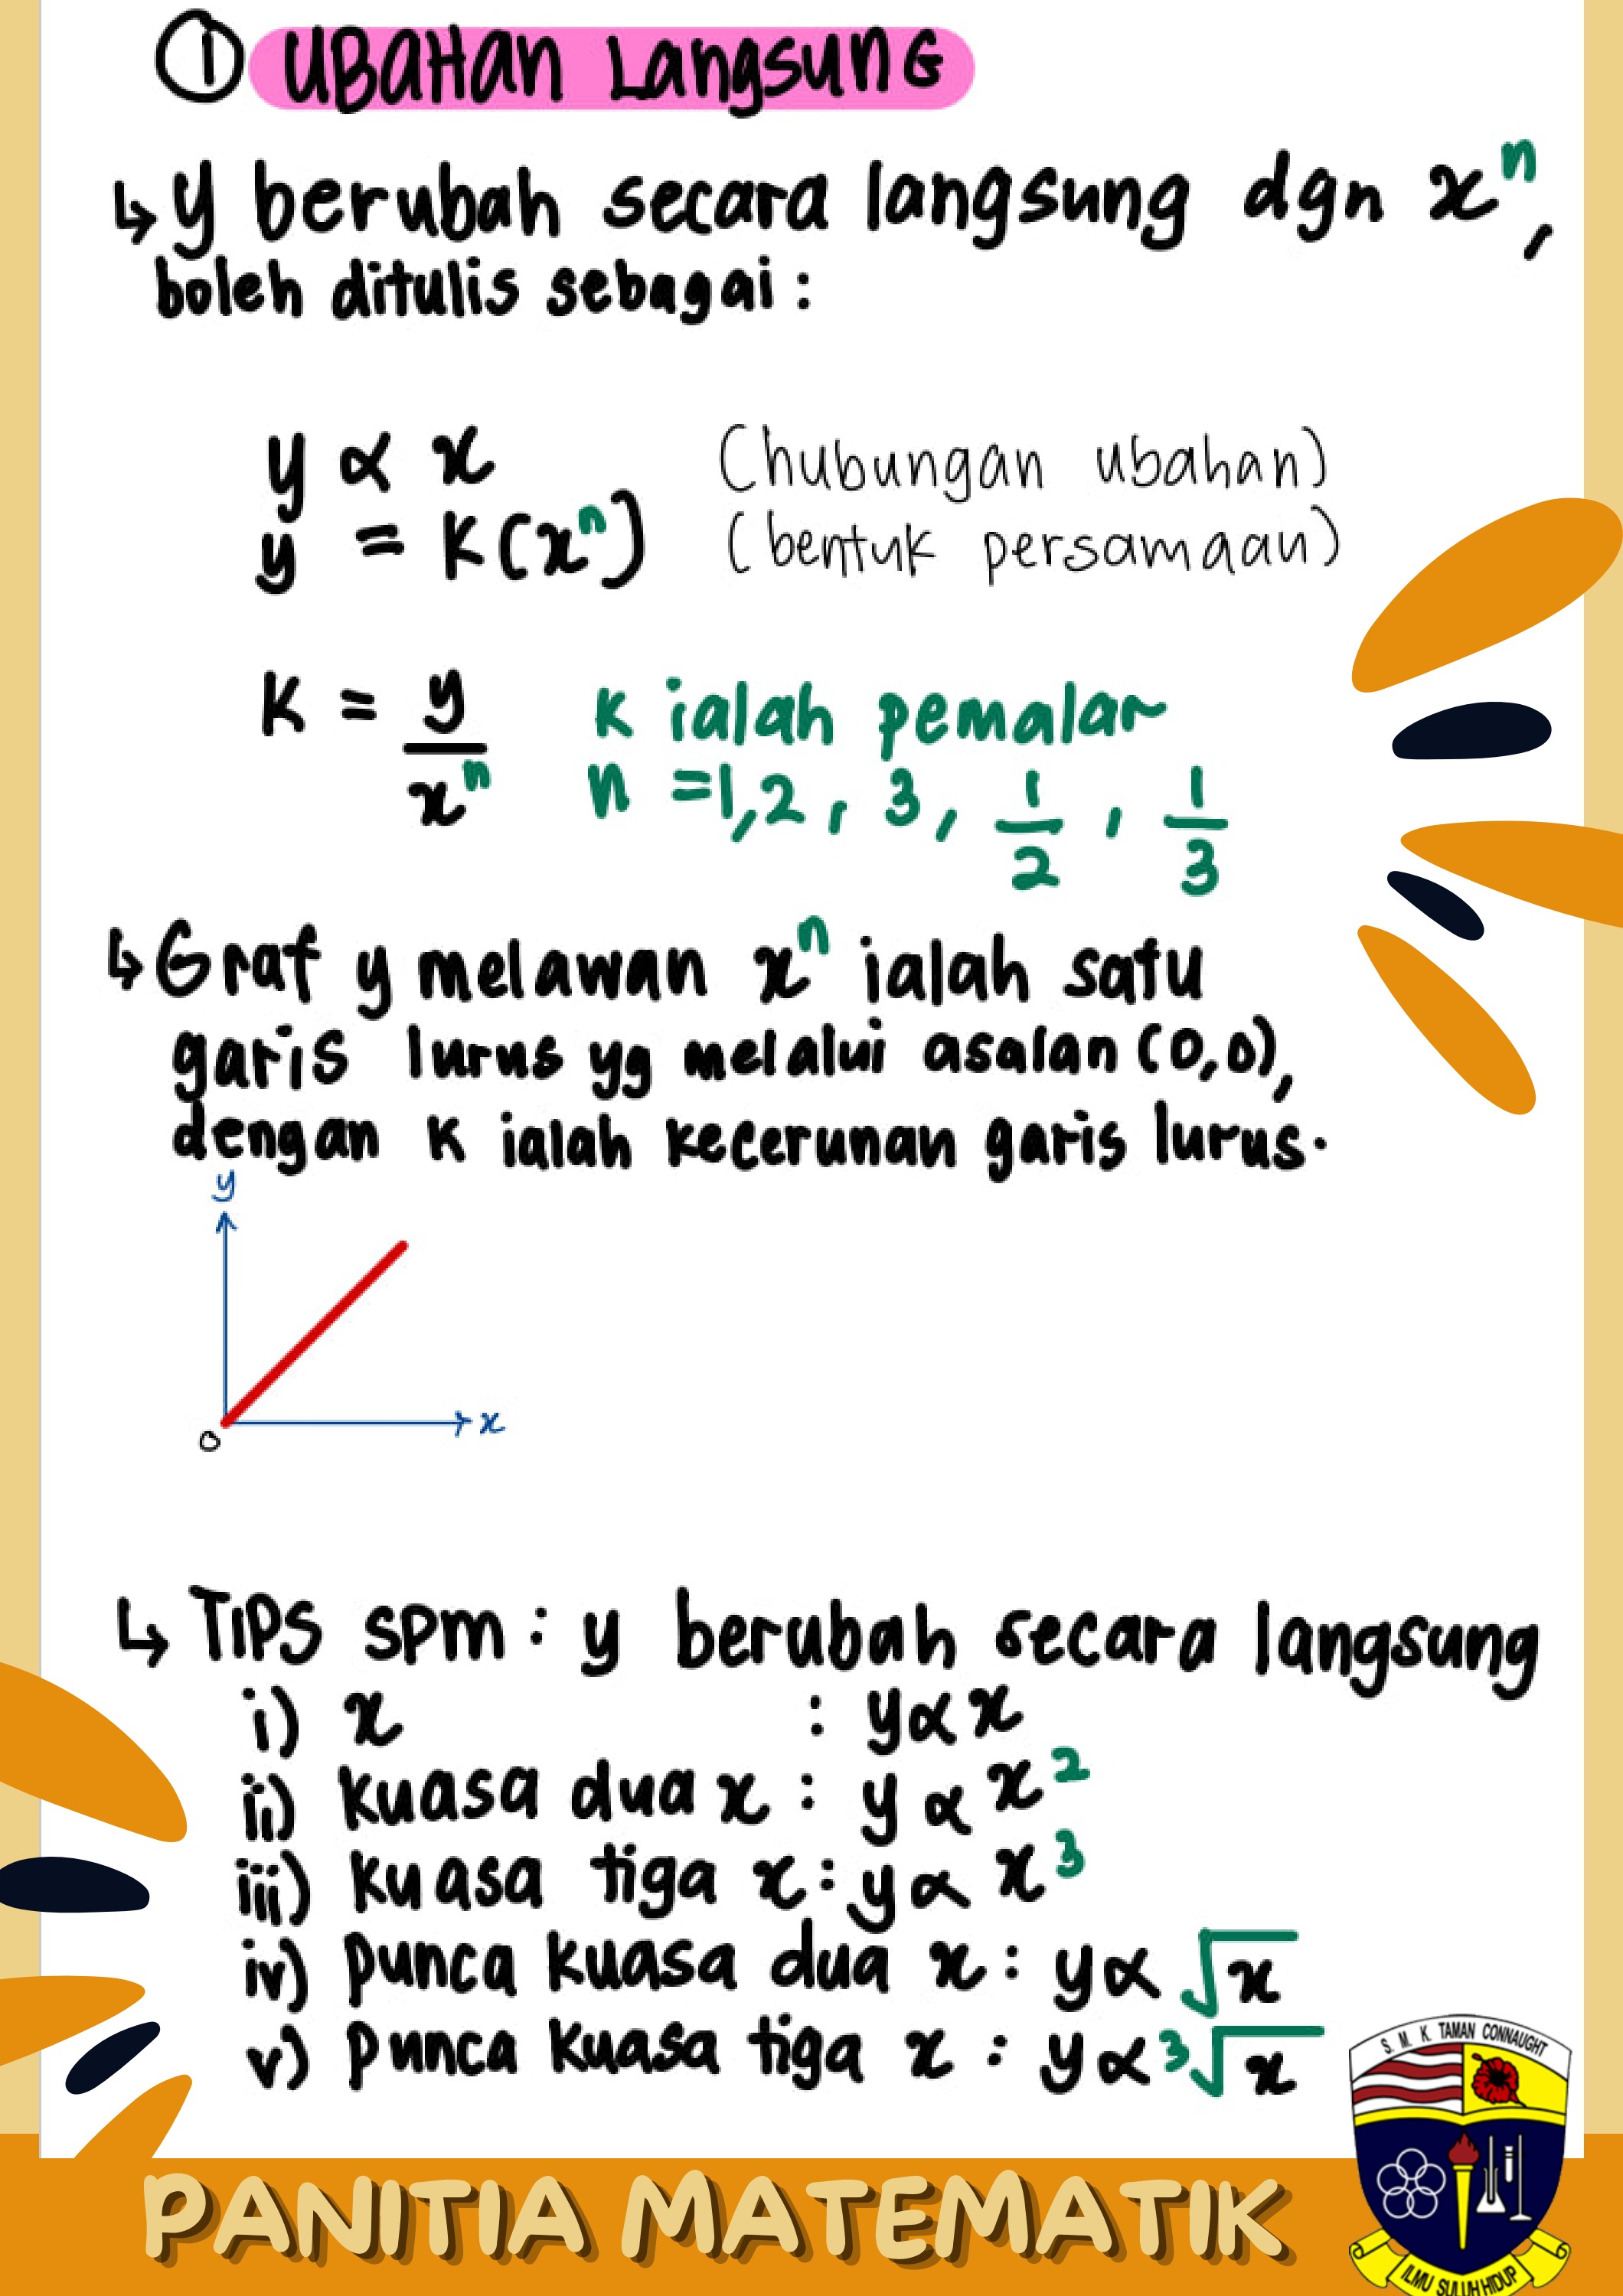 ① UBAHAN LANGSUNG
↳ y berubah secara langsung dgn xⁿ,
boleh ditulis sebagai :
y ∝ x (hubungan ubahan)
y = K(xⁿ) (bentuk persamaan)
K = y/xⁿ K ialah pemalar
n =1,2, 3, 1/2, 1/3
↳ Graf y melawan xⁿ ialah satu
garis lurus yg melalui asalan (0,0),
dengan K ialah kecerunan garis lurus.
y
0
x
↳ TIPS SPM : y berubah secara langsung
i) x : y∝x
ii) kuasa dua x : y ∝ x²
iii) kuasa tiga x : y∝ x³
iv) punca kuasa dua x : y∝ √x
v) punca kuasa tiga x : y∝ ³√x
S. M. K TAMAN CONNAUGHT
PANITIA MATEMATIK
ILMU SULUH HIDUP